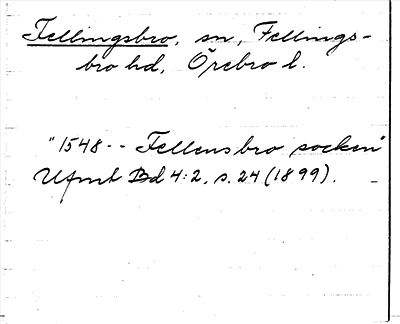 Fellingsbro, sn, Fellings-
bro hd, Örebro l.
"1548 -- Fellensbro socken"
Ufmt Bd 4:2, s. 24 (1899).